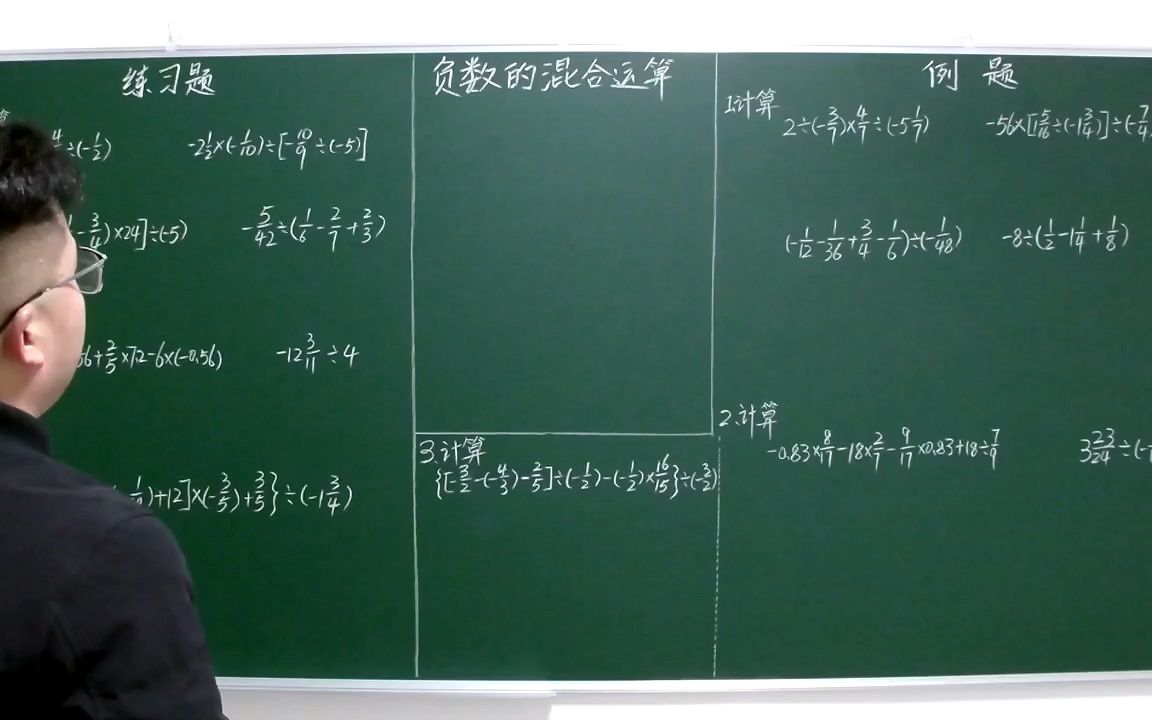 练习题
÷(-1/2)
-2 1/2×(-1/10)÷[-10/9÷(-5)]
-3/4)×24]÷(-5)
-5/42÷(1/6-2/7+2/3)
56+2/5×7.2-6×(-0.56)
-12 3/11÷4
)+12]×(-3/5)+3/5}÷(-1 3/4)
负数的混合运算
3.计算
{[-3/2-(-4/3)-2/5]÷(-1/2)-(-1/2)×16/15}÷(-3/2)
例题
1.计算
2÷(-3/7)×4/7÷(-5 1/7)
-56×[1 5/16÷(-1 3/4)]÷(-7/4
(-1/12-1/36+3/4-1/6)÷(-1/48)
-8÷(1/2-1 1/4+1/8)
2.计算
-0.83×8/17-18×2/7-9/17×0.83+18÷7/9
3 23/24÷(-